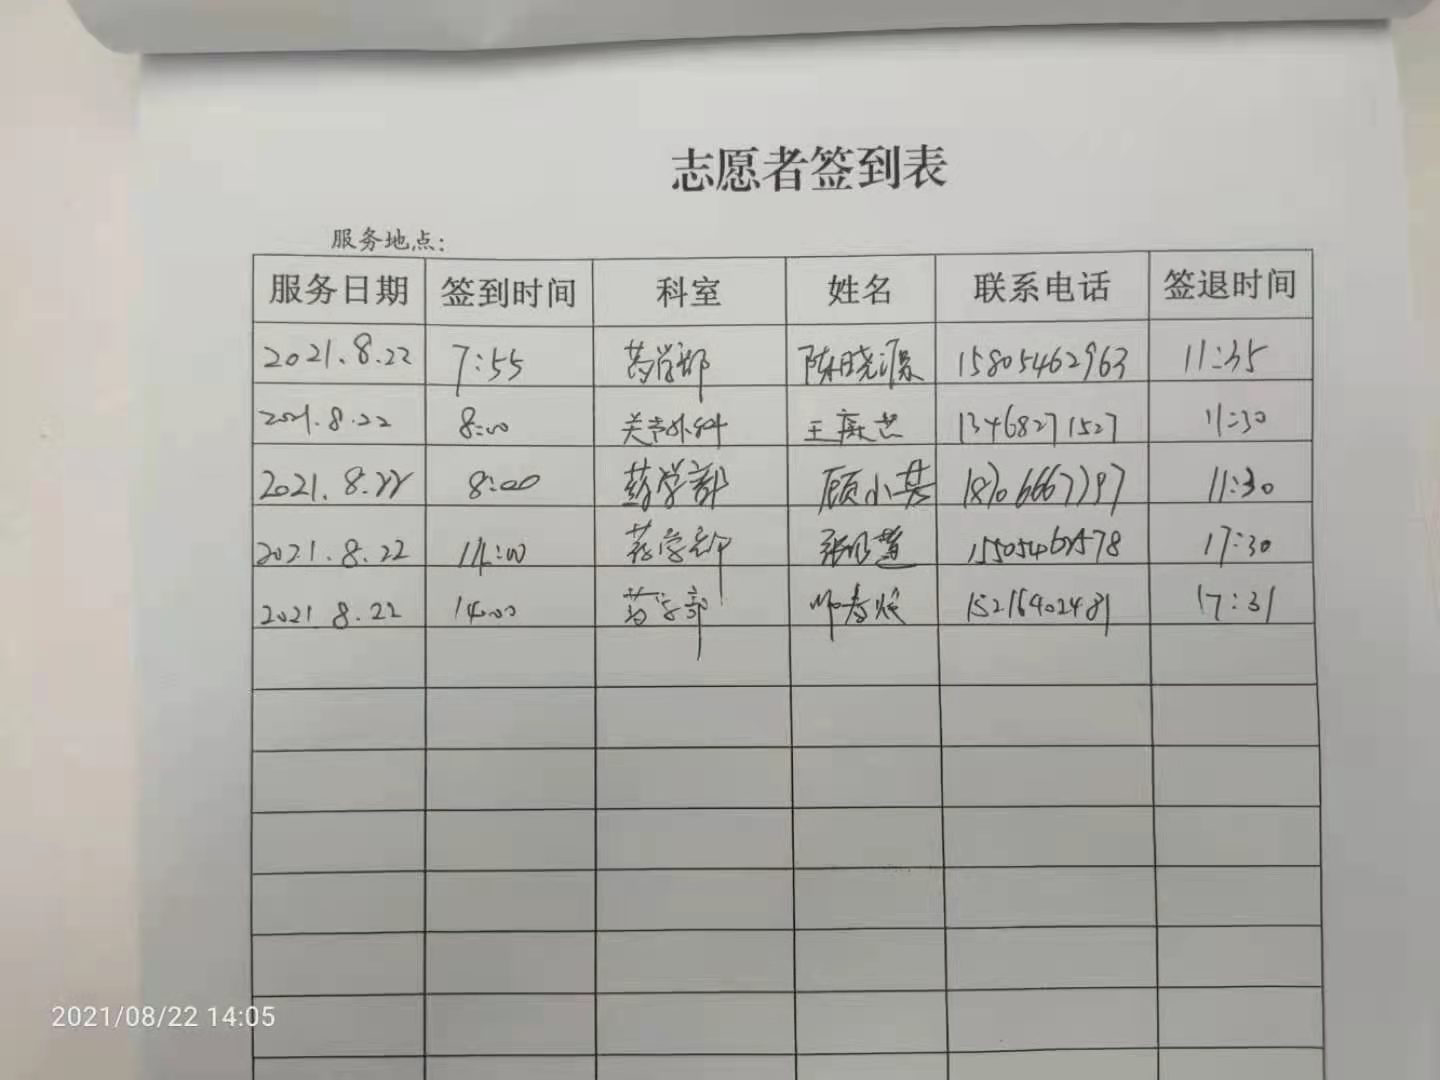 志愿者签到表
服务地点:
服务日期 签到时间 科室 姓名 联系电话 签退时间
2021.8.22 7:55 药学部 陈晓源 15805462963 11:35
2021.8.22 8:00 关节外科 王 13468271527 11:30
2021.8.22 8:00 药学部 顾小其 18706667797 11:30
2021.8.22 14:00 药学部 17:30
2021.8.22 14:00 药学部 15216402481 17:31
2021/08/22 14:05